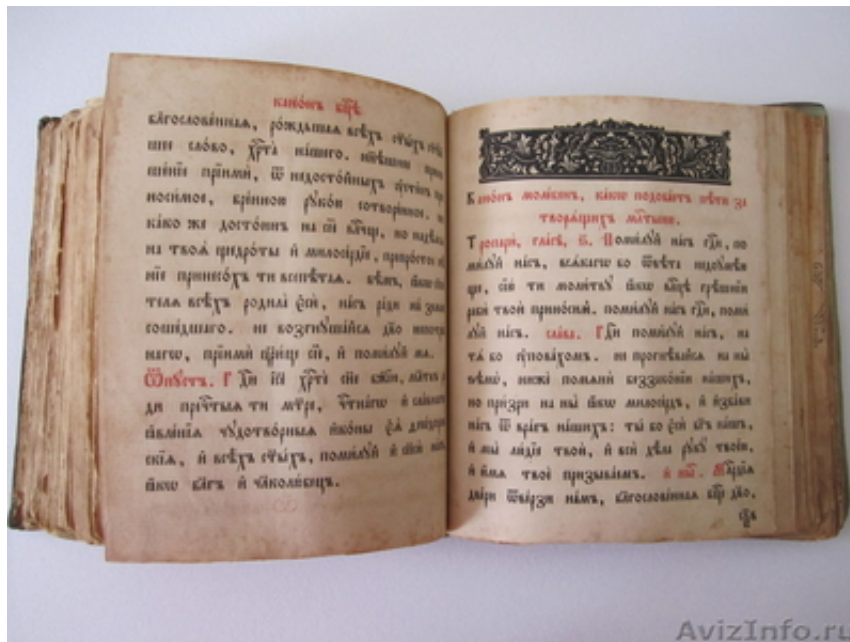 кано́нъ бц҃ѣ
бл҃гослове́нная, ро́ждьшая всѣ́хъ ст҃ы́хъ
шее сло́во, хр҃та̀ на́шего.
прїимѝ, ѿ недосто́йныхъ
носи́мое, бре́нною руко́ю сотворе́нное.
ка́ко же досто́инъ на сїѐ но надѣ́яся
на твоя̀ щедро́ты и҆ милосе́рдїе,
нїе принесо́хъ ти всепѣ́тая.
теля всѣ́хъ родила̀ є҆сѝ, на́съ ра́ди на́ землю
соше́дшаго. не возгнуша́йся дв҃о
прїимѝ сїѐ, и҆ поми́луй мя.
Ѿпу́стъ. Гд҃и і҆с҃е хр҃тѐ сн҃е бж҃їи,
ди пречⷭ҇тыя ти мт҃ре,
ꙗ҆вле́нїя чудотво́рныя и҆ко́ны є҆я̀
скїя, и҆ всѣ́хъ ст҃ы́хъ, поми́луй и҆ сп҃сѝ на́съ
ꙗ҆́кѡ бл҃гъ и҆ чл҃колю́бецъ.
Кано́нъ моле́бенъ, ка́кѡ подоба́етъ пѣ́ти за
творя́щихъ мл҃тыню.
Тропари̑, гла́съ, Поми́луй на́съ гд҃и, по
ми́луй на́съ, вся́кагѡ бо ѿвѣ́та недоумѣ́ю
ще, сїю̀ ти моли́тву ꙗ҆́кѡ вл҃цѣ грѣ́шнїи
рабѝ твоѝ прино́симъ. поми́луй на́съ гд҃и, поми́
луй на́съ. сла́ва. Гд҃и поми́луй на́съ, на
тя́ бо ᲂу҆пова́хомъ. не прогнѣ́вайся на ны̀
ѕѣлѡ̀, нижѐ помянѝ беззако́нїи на́шихъ,
но при́зри на ны̀ ꙗ҆́кѡ милосе́рдъ, и҆ и҆зба́ви
на́съ ѿ вра́гъ на́шихъ: ты́ бо є҆сѝ бг҃ъ на́шъ,
и҆ мы̀ лю́дїе твоѝ, и҆ всѝ дѣ́ла руку̀ твое́ю,
и҆ и҆́мя твоѐ призыва́емъ. и҆ ны́нѣ. Мл҃рдїя
две́ри ѿве́рзи на́мъ, бл҃гослове́нная бц҃е дв҃о.
AvizInfo.ru